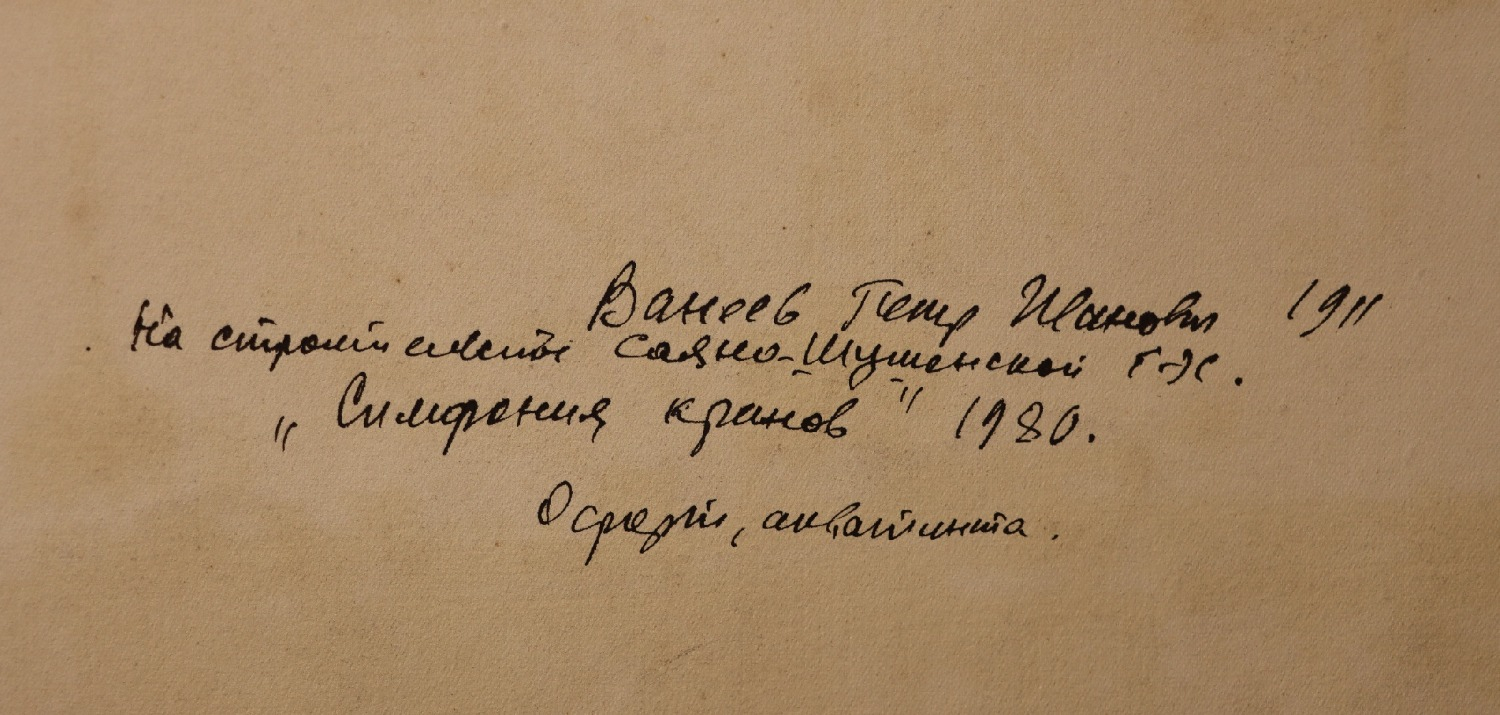 Ванеев Петр Иванович 1911
На строительстве Саяно-Шушенской ГЭС.
„Симфония кранов" 1980.
Офорт, акватинта.